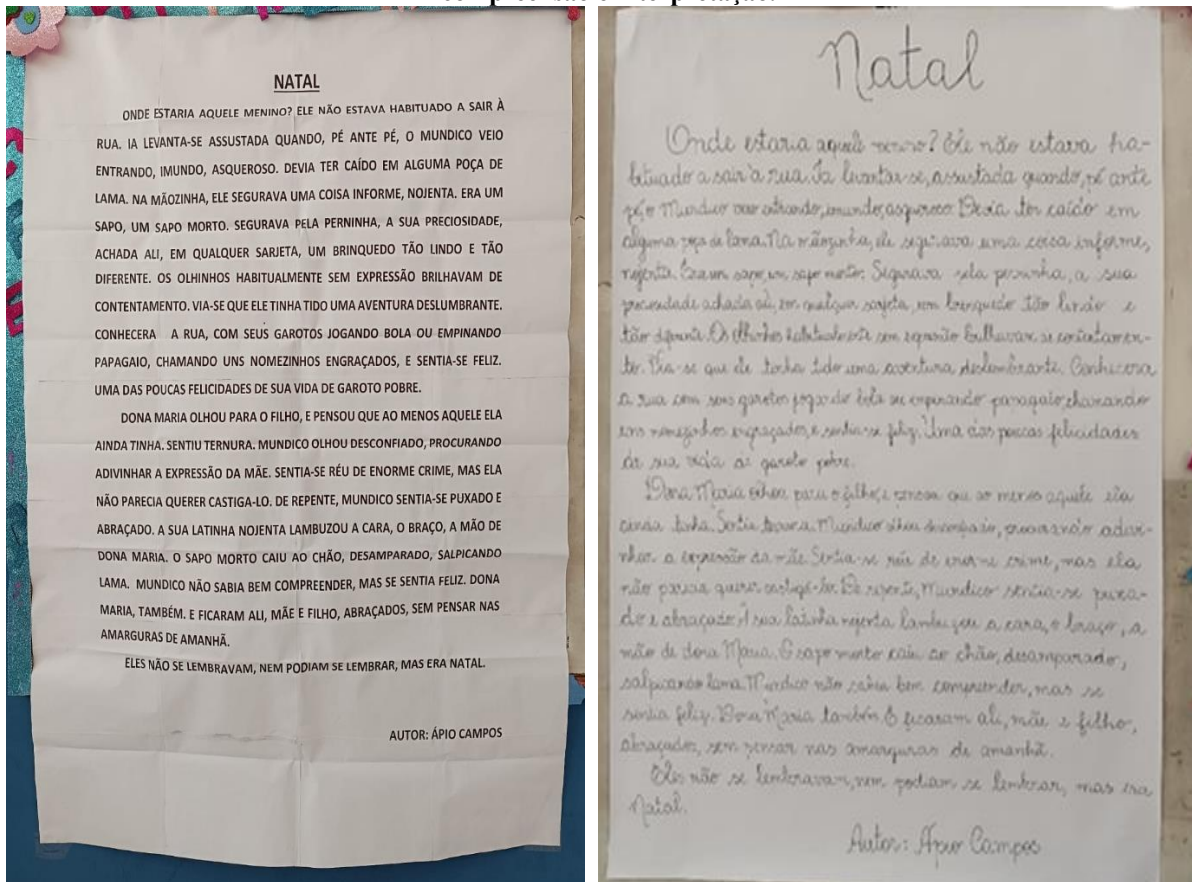 NATAL
ONDE ESTARIA AQUELE MENINO? ELE NÃO ESTAVA HABITUADO A SAIR À
RUA. IA LEVANTA-SE ASSUSTADA QUANDO, PÉ ANTE PÉ, O MUNDICO VEIO
ENTRANDO, IMUNDO, ASQUEROSO. DEVIA TER CAÍDO EM ALGUMA POÇA DE
LAMA. NA MÃOZINHA, ELE SEGURAVA UMA COISA INFORME, NOJENTA. ERA UM
SAPO, UM SAPO MORTO. SEGURAVA PELA PERNINHA, A SUA PRECIOSIDADE,
ACHADA ALI, EM QUALQUER SARJETA, UM BRINQUEDO TÃO LINDO E TÃO
DIFERENTE. OS OLHINHOS HABITUALMENTE SEM EXPRESSÃO BRILHAVAM DE
CONTENTAMENTO. VIA-SE QUE ELE TINHA TIDO UMA AVENTURA DESLUMBRANTE.
CONHECERA A RUA, COM SEUS GAROTOS JOGANDO BOLA OU EMPINANDO
PAPAGAIO, CHAMANDO UNS NOMEZINHOS ENGRAÇADOS, E SENTIA-SE FELIZ.
UMA DAS POUCAS FELICIDADES DE SUA VIDA DE GAROTO POBRE.
DONA MARIA OLHOU PARA O FILHO, E PENSOU QUE AO MENOS AQUELE ELA
AINDA TINHA. SENTIU TERNURA. MUNDICO OLHOU DESCONFIADO, PROCURANDO
ADIVINHAR A EXPRESSÃO DA MÃE. SENTIA-SE RÉU DE ENORME CRIME, MAS ELA
NÃO PARECIA QUERER CASTIGA-LO. DE REPENTE, MUNDICO SENTIA-SE PUXADO E
ABRAÇADO. A SUA LATINHA NOJENTA LAMBUZOU A CARA, O BRAÇO, A MÃO DE
DONA MARIA. O SAPO MORTO CAIU AO CHÃO, DESAMPARADO, SALPICANDO
LAMA. MUNDICO NÃO SABIA BEM COMPREENDER, MAS SE SENTIA FELIZ. DONA
MARIA, TAMBÉM. E FICARAM ALI, MÃE E FILHO, ABRAÇADOS, SEM PENSAR NAS
AMARGURAS DE AMANHÃ.
ELES NÃO SE LEMBRAVAM, NEM PODIAM SE LEMBRAR, MAS ERA NATAL.
AUTOR: ÁPIO CAMPOS
Natal
Onde estaria aquele menino? Ele não estava ha-
bituado a sair à rua. Ia levantar-se, assustada quando, pé ante
pé, o Mundico veio entrando, imundo, asqueroso. Devia ter caído em
alguma poça de lama. Na mãozinha, ele segurava uma coisa informe,
nojenta. Era um sapo, um sapo morto. Segurava pela perninha, a sua
preciosidade achada ali, em qualquer sarjeta, um brinquedo tão lindo e
tão diferente. Os olhinhos habitualmente sem expressão brilhavam de contentamen-
to. Via-se que ele tinha tido uma aventura deslumbrante. Conhecera
a rua com seus garotos jogando bola ou empinando papagaio, chamando
uns nomezinhos engraçados, e sentia-se feliz. Uma das poucas felicidades
de sua vida de garoto pobre.
Dona Maria olhou para o filho, e pensou que ao menos aquele ela
ainda tinha. Sentiu ternura. Mundico olhou desconfiado, procurando adivi-
nhar a expressão da mãe. Sentia-se réu de enorme crime, mas ela
não parecia querer castigá-lo. De repente, Mundico sentia-se puxa-
do e abraçado. A sua latinha nojenta lambuzou a cara, o braço, a
mão de dona Maria. O sapo morto caiu ao chão, desamparado,
salpicando lama. Mundico não sabia bem compreender, mas se
sentia feliz. Dona Maria também. E ficaram ali, mãe e filho,
abraçados, sem pensar nas amarguras de amanhã.
Eles não se lembravam, nem podiam se lembrar, mas era
Natal.
Autor: Ápio Campos